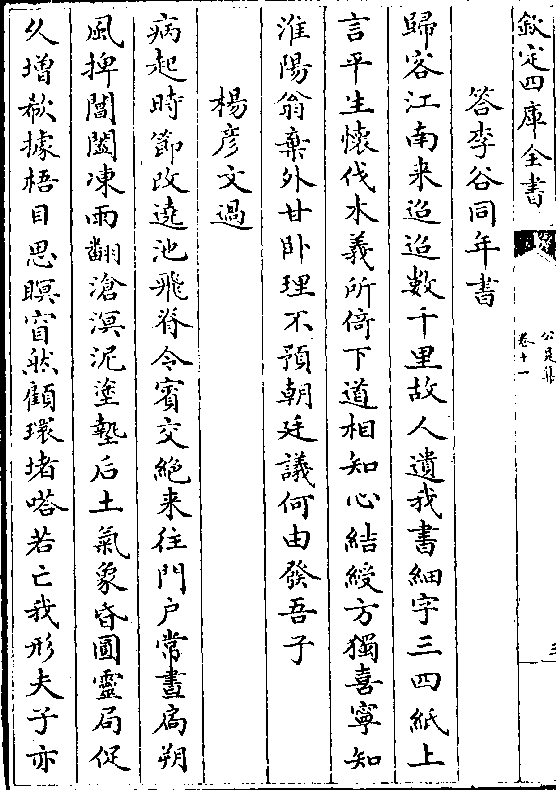 欽定四庫全書
公是集
卷十一
答李谷同年書
歸客江南来迢迢數千里故人遺我書細字三四紙上
言平生懷伐木義所倚下道相知心結綬方獨喜寧知
淮陽翁棄外甘卧理不預朝廷議何由發吾子
楊彥文過
病起時節改遶池飛脊令賓交絶来往門户常晝扃朔
風捭闔闔凍雨翻滄溟泥塗墊后土氣象昏圓靈局促
久增欷據梧目思瞑窅然顧環堵嗒若亡我形夫子亦